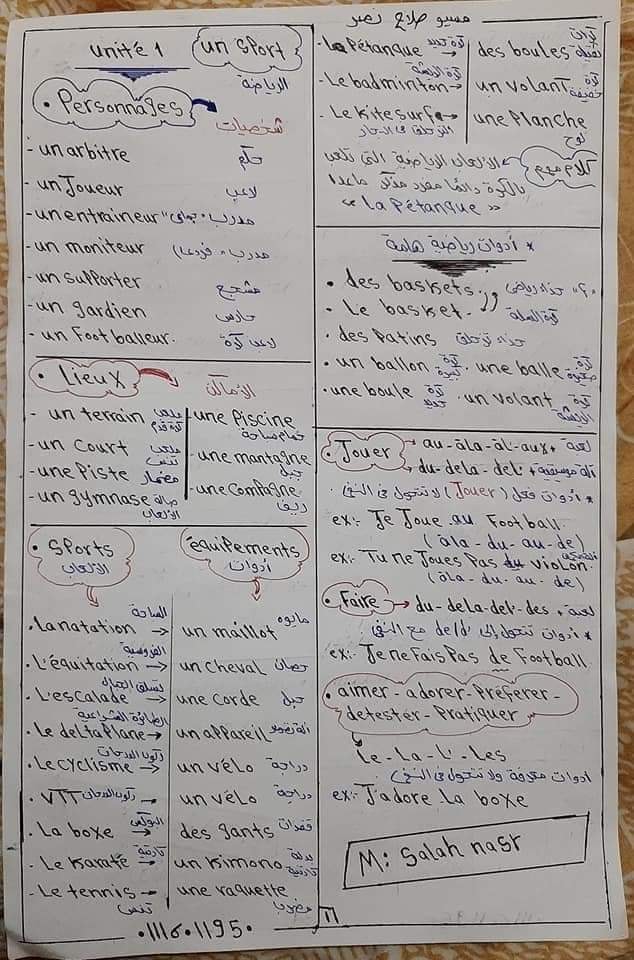 مسيو صلاح نصر
unité 1
un sport
الرياضة
• Personnages
شخصيات
- un arbitre حكم
- un Joueur لاعب
- un entraineur "مدرب "جماعى
- un moniteur مدرب "فردى"
- un supporter مشجع
- un gardien حارس
- un Footballeur. لاعب كرة
• Lieux
الأماكن
- un terrain ملعب كرة قدم
- un Court ملعب تنس
- une Piste مضمار
- un gymnase صالة الألعاب
- une Piscine حمام سباحة
- une mantagne جبل
- une Compagne ريف
• Sports الألعاب
équipements أدوات
• La natation السباحة → un maillot مايوه
• L'équitation الفروسية → un cheval حصان
• L'escalade تسلق الجبال → une corde حبل
• Le deltaplane الطائرة الشراعية → un appareil
• Le cyclisme ركوب الدراجات → un vélo دراجة
• VTT ركوب الدراجات → un vélo دراجة
• La boxe البوكس → des gants قفازات
• Le Karaté كاراتية → un Kimono بدلة كاراتية
- Le tennis تنس → une raquette مضرب
• 0111601195 •
• La Pétanque كرة حديد → des boules كرات ثقيلة
- Le badminton كرة الريشة → un volant كرة خفيفة
- Le Kitesurf التزحلق فى البحار → une Planche لوح
كلام مهم
الألعاب الرياضية التى تلعب
بالكرة دائمًا مفرد مذكر ماعدا
« La Pétanque »
* أدوات رياضية هامة
• des baskets حذاء رياضى
• Le basket كرة السلة
• des Patins حذاء تزحلق
• un ballon كرة كبيرة • une balle كرة صغيرة
• une boule كرة حديد • un volant كرة الريشة
• Jouer
au - àla - àl' - aux + لعبة
du - dela - del' - des + آلة موسيقية
* أدوات فعل (Jouer) لا تتحول فى النفى
ex: Je Joue au Football
(àla - du - au - de)
ex: Tu ne Joues Pas du violon.
(àla - du - au - de)
• Faire → du - dela - del' - des + لعبة
* أدوات تتحول إلى de/d' مع النفى
ex: Je ne Fais Pas de Football
• aimer - adorer - Préferer -
detester - Pratiquer
Le - La - L' - Les
أدوات معرفة ولا تتحول فى النفى
ex: J'adore La boxe
M: Salah nasr